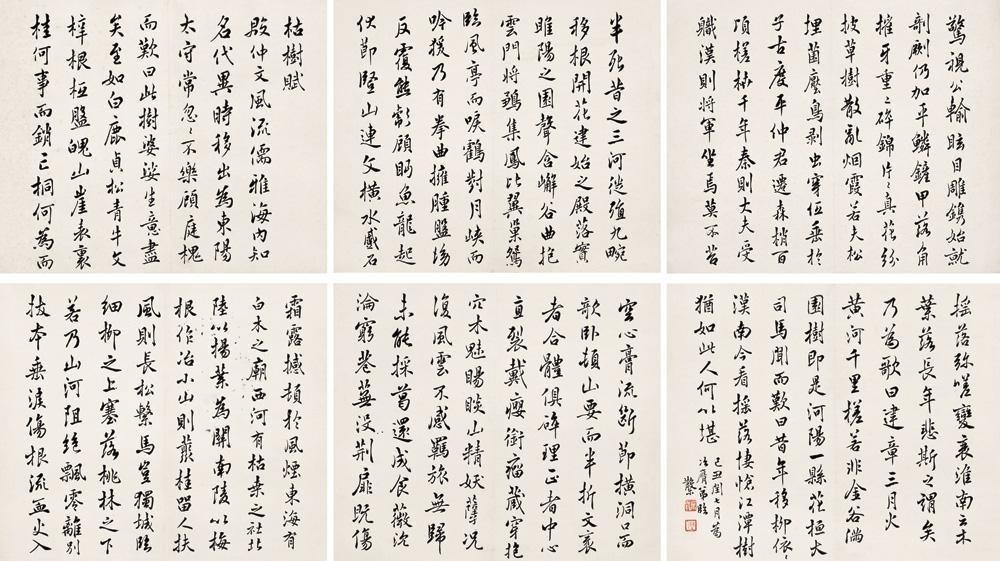 枯樹賦
殷仲文風流儒雅海內知
名代異時移出為東陽
太守常忽〻不樂顧庭槐
而歎曰此樹婆娑生意盡
矣至如白鹿貞松青牛文
梓根柢盤魄山崖表裏
桂何事而銷亡桐何為而
半死昔之三河徙殖九畹
移根開花建始之殿落實
睢陽之園聲含嶰谷曲抱
雲門將鵄集鳳比翼巢鴛
臨風亭而唳鶴對月峽而
吟猨乃有拳曲擁腫盤坳
反覆熊彪顧眄魚龍起
伏節豎山連文橫水蹙石
驚視公輸眩目雕鎸始就
剞劂仍加平鱗鏟甲落角
摧牙重〻碎錦片〻真花紛
披草樹散亂烟霞若夫松
埋菌壓鳥剥虫穿低垂於
子古度平仲君遷森梢百
頃槎枿千年秦則大夫受
職漢則將軍坐焉莫不苔
霜露撼頓於風煙東海有
白木之廟西河有枯桑之社北
陸以揚葉為關南陵以梅
根作冶小山則叢桂留人扶
風則長松繫馬豈獨城臨
細柳之上塞落桃林之下
若乃山河阻絕飄零離別
拔本垂淚傷根流血火入
空心膏流斷節橫洞口而
欹臥頓山要而半折文衺
者合體俱碎理正者中心
直裂戴癭銜瘤藏穿抱
穴木魅睗睒山精妖孽況
復風雲不感羈旅無歸
未能採葛還成食薇沉
淪窮巷蕪沒荊扉既傷
搖落弥嗟變衰淮南云木
葉落長年悲斯之謂矣
乃為歌曰建章三月火
黃河千里槎若非金谷滿
園樹即是河陽一縣花桓大
司馬聞而歎曰昔年移柳依〻
漢南今看搖落悽愴江潭樹
猶如此人何以堪
己丑閏七月為